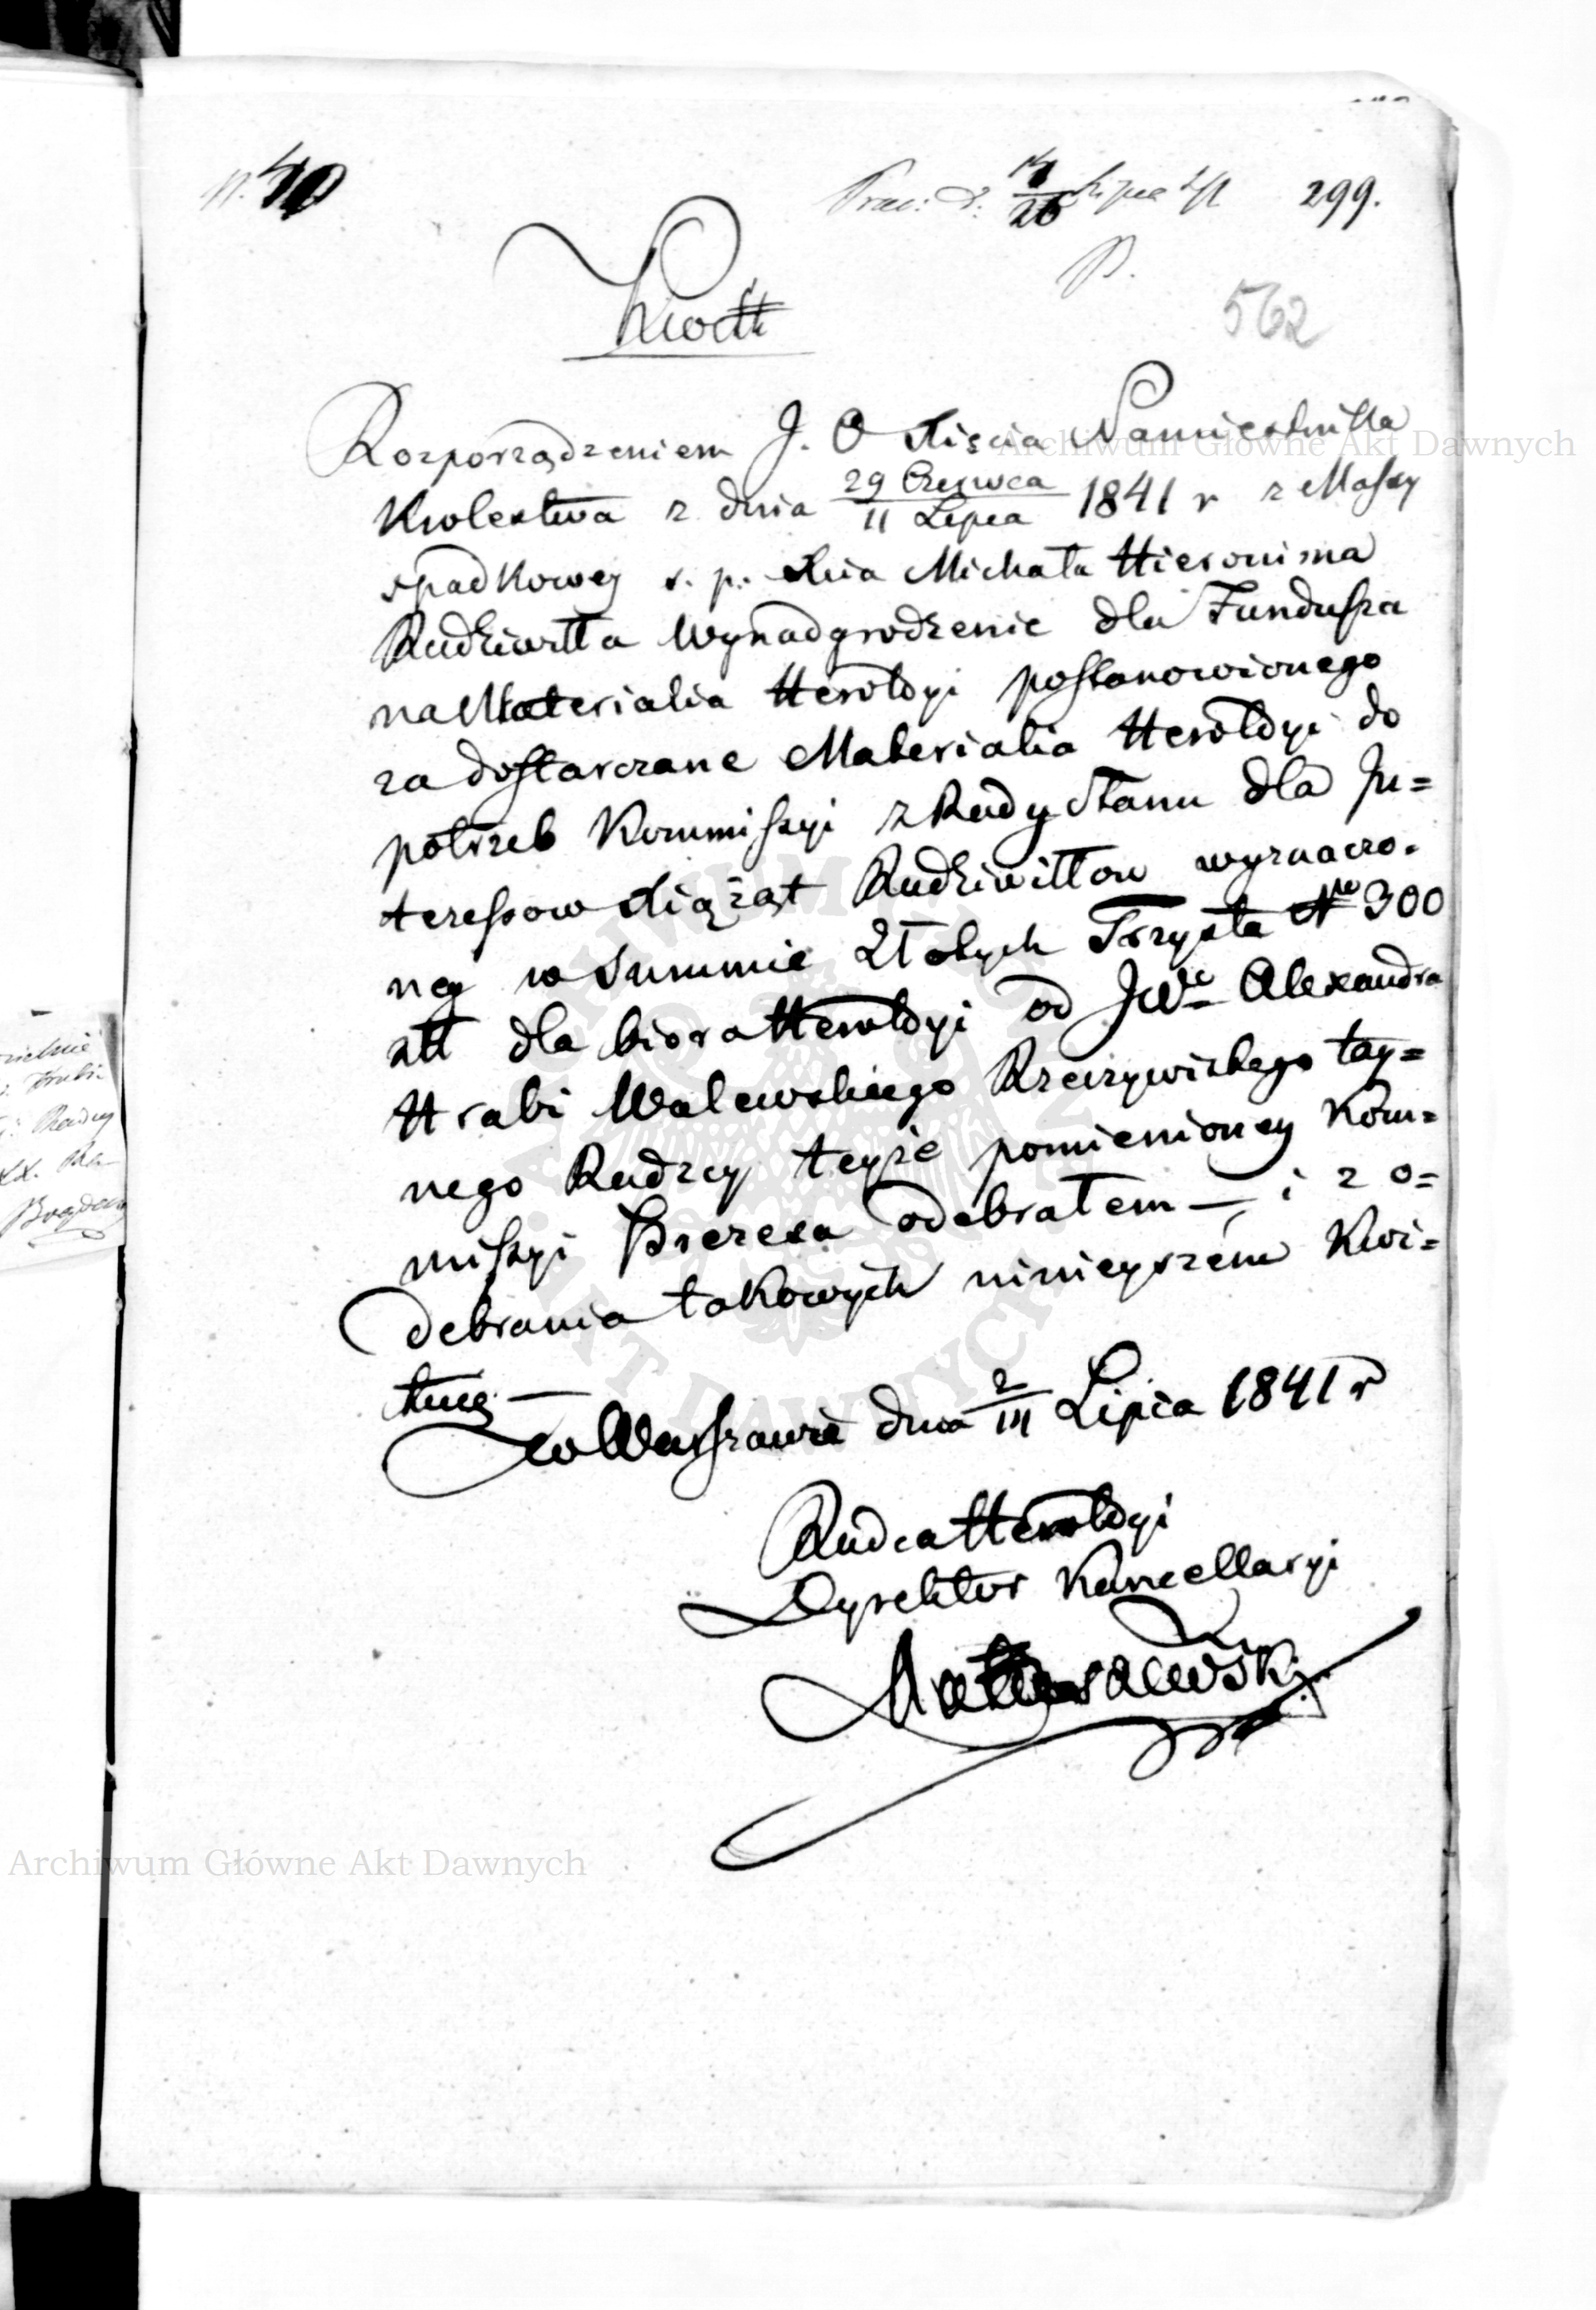 n. 40
Prac: d. 14/26 Lipca 299.
562
Kwitt
Rozporządzeniem J. O Xięcia Namiestnika
Krolestwa z dnia 29 Czerwca / 11 Lipca 1841 r z Massy
spadkowey s. p. Xcia Michała Hieronima
Radziwiłła Wynadgrodzenie dla Fundusza
na Materialia Heroldyi postanowionego
za dostarczane Materialia Heroldyi do
potrzeb Kommissyi z Rady Stanu dla In=
teressow Xiążąt Radziwiłłow wyznaczo.
ney w Summie Złotych Trzysta No 300
złł dla biora Heroldyi od JWo Alexandra
Hrabi Walewskiego Rzeczywistego tay=
nego Radzcy teyże pomienioney Kom=
missyi Prezesa odebrałem — i z o=
debrania takowych ninieyszém Kwi=
tuię. —
w Warszawie dnia 2/14 Lipca 1841 r
Radca Heroldyi
Dyrektor Kancellaryi
zielnie
Radcy
Archiwum Główne Akt Dawnych
Archiwum Główne Akt Dawnych